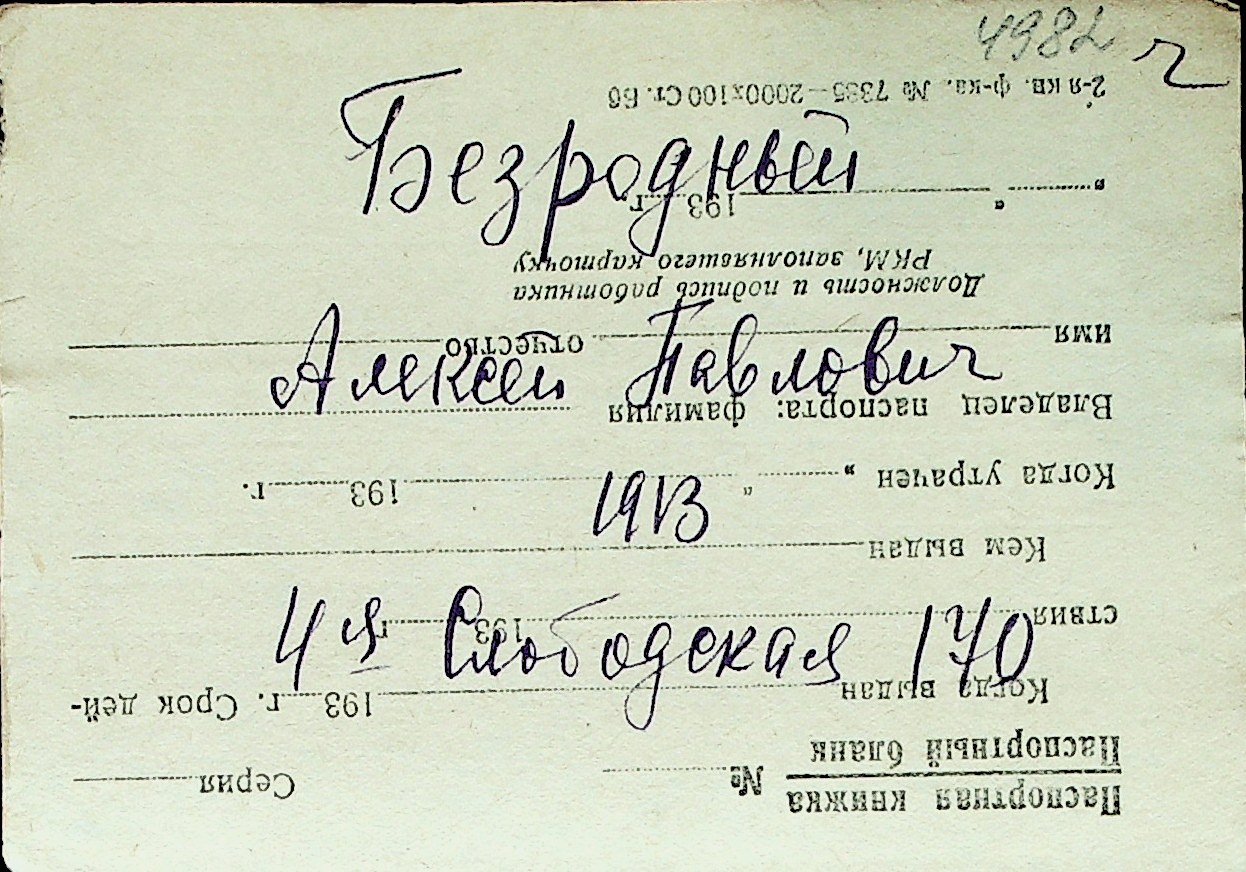 4982 г
Безродный
Алексей Павлович
1913
4я Слободская 170
Паспортная книжка
Паспортный бланк № Серия
Когда выдан 193 г. Срок дей-
ствия 193 г.
Кем выдан
Когда утрачен „ “ 193 г.
Владелец паспорта: фамилия
имя отчество
Должность и подпись работника
РКМ, заполнявшего карточку
„ “ 193 г.
2-я кв. ф-ка. № 7385—2000х100 Ст. Бб